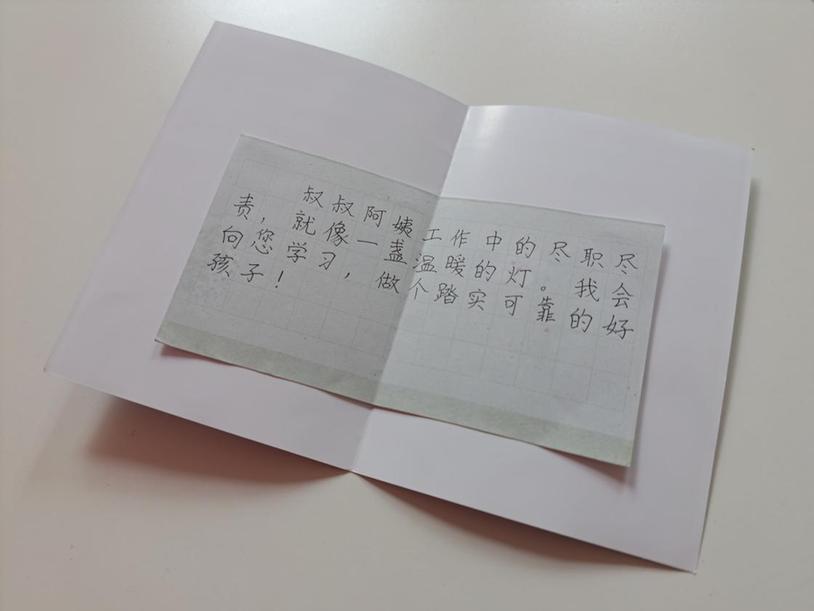 叔叔阿姨工作中的尽职尽
责，就像一盏温暖的灯。我会
向您学习，做个踏实可靠的好
孩子！